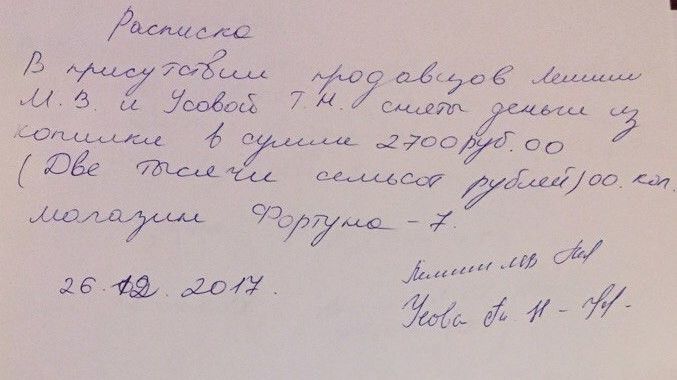 Расписка
В присутствии продавцов
М.В. и Усовой Т.Н. сняты деньги из
копилки в сумме 2700 руб. 00
(Две тысячи семьсот рублей) 00. коп.
магазин Фортуна - 7.
26.12.2017.
Усова